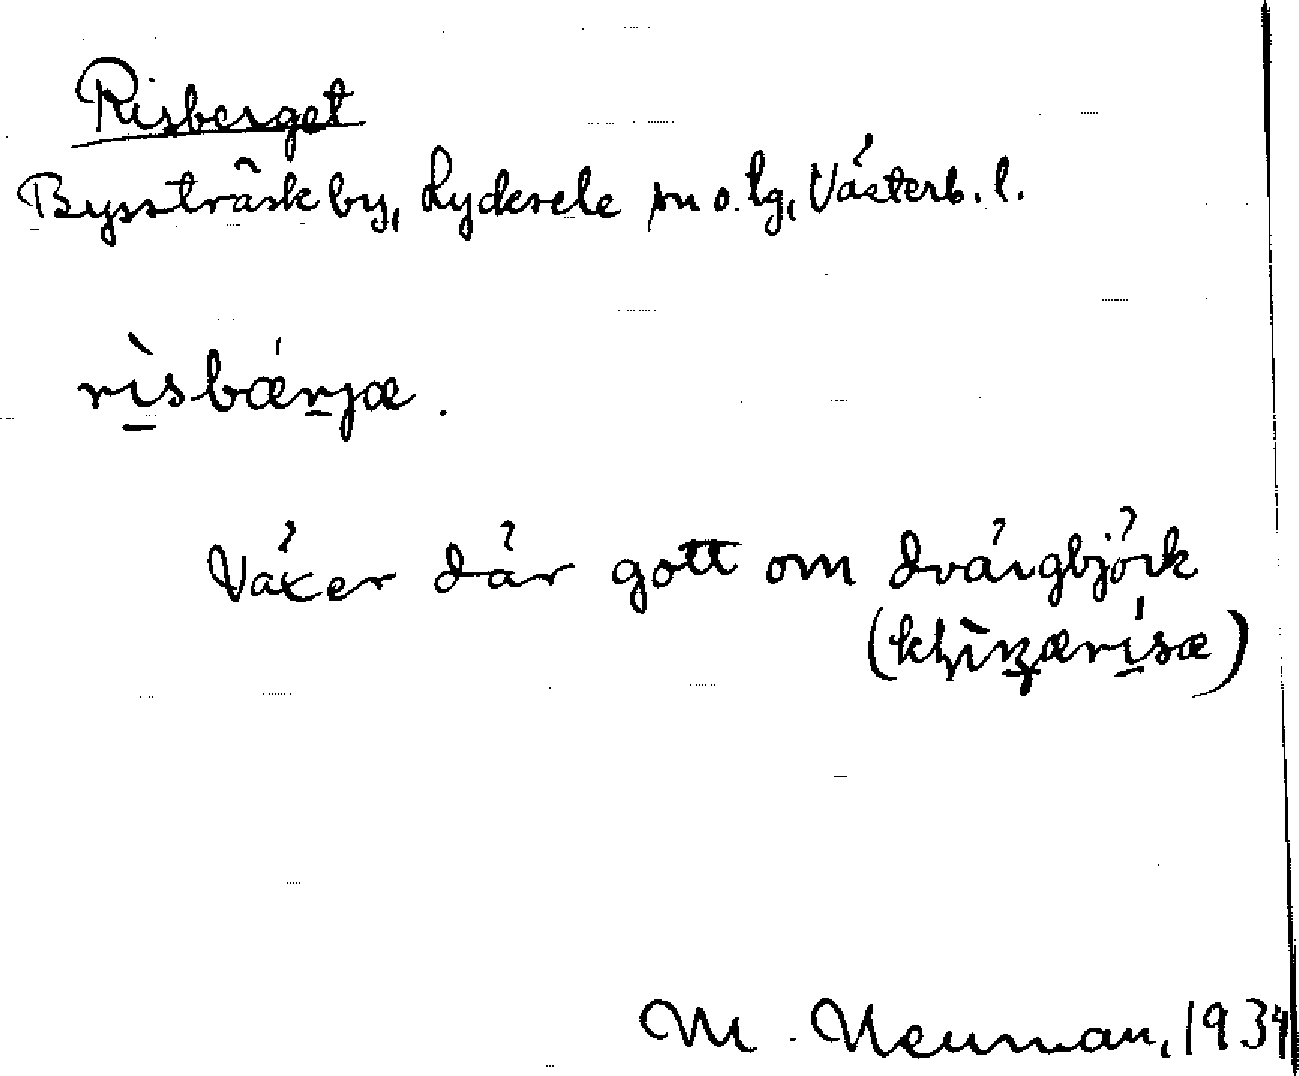 Risberget
Byssträsk by, Lycksele sn o. lg, Västerb. l.
rìsbǽrjæ.
Växer där gott om dvärgbjörk
M. Neuman, 1934